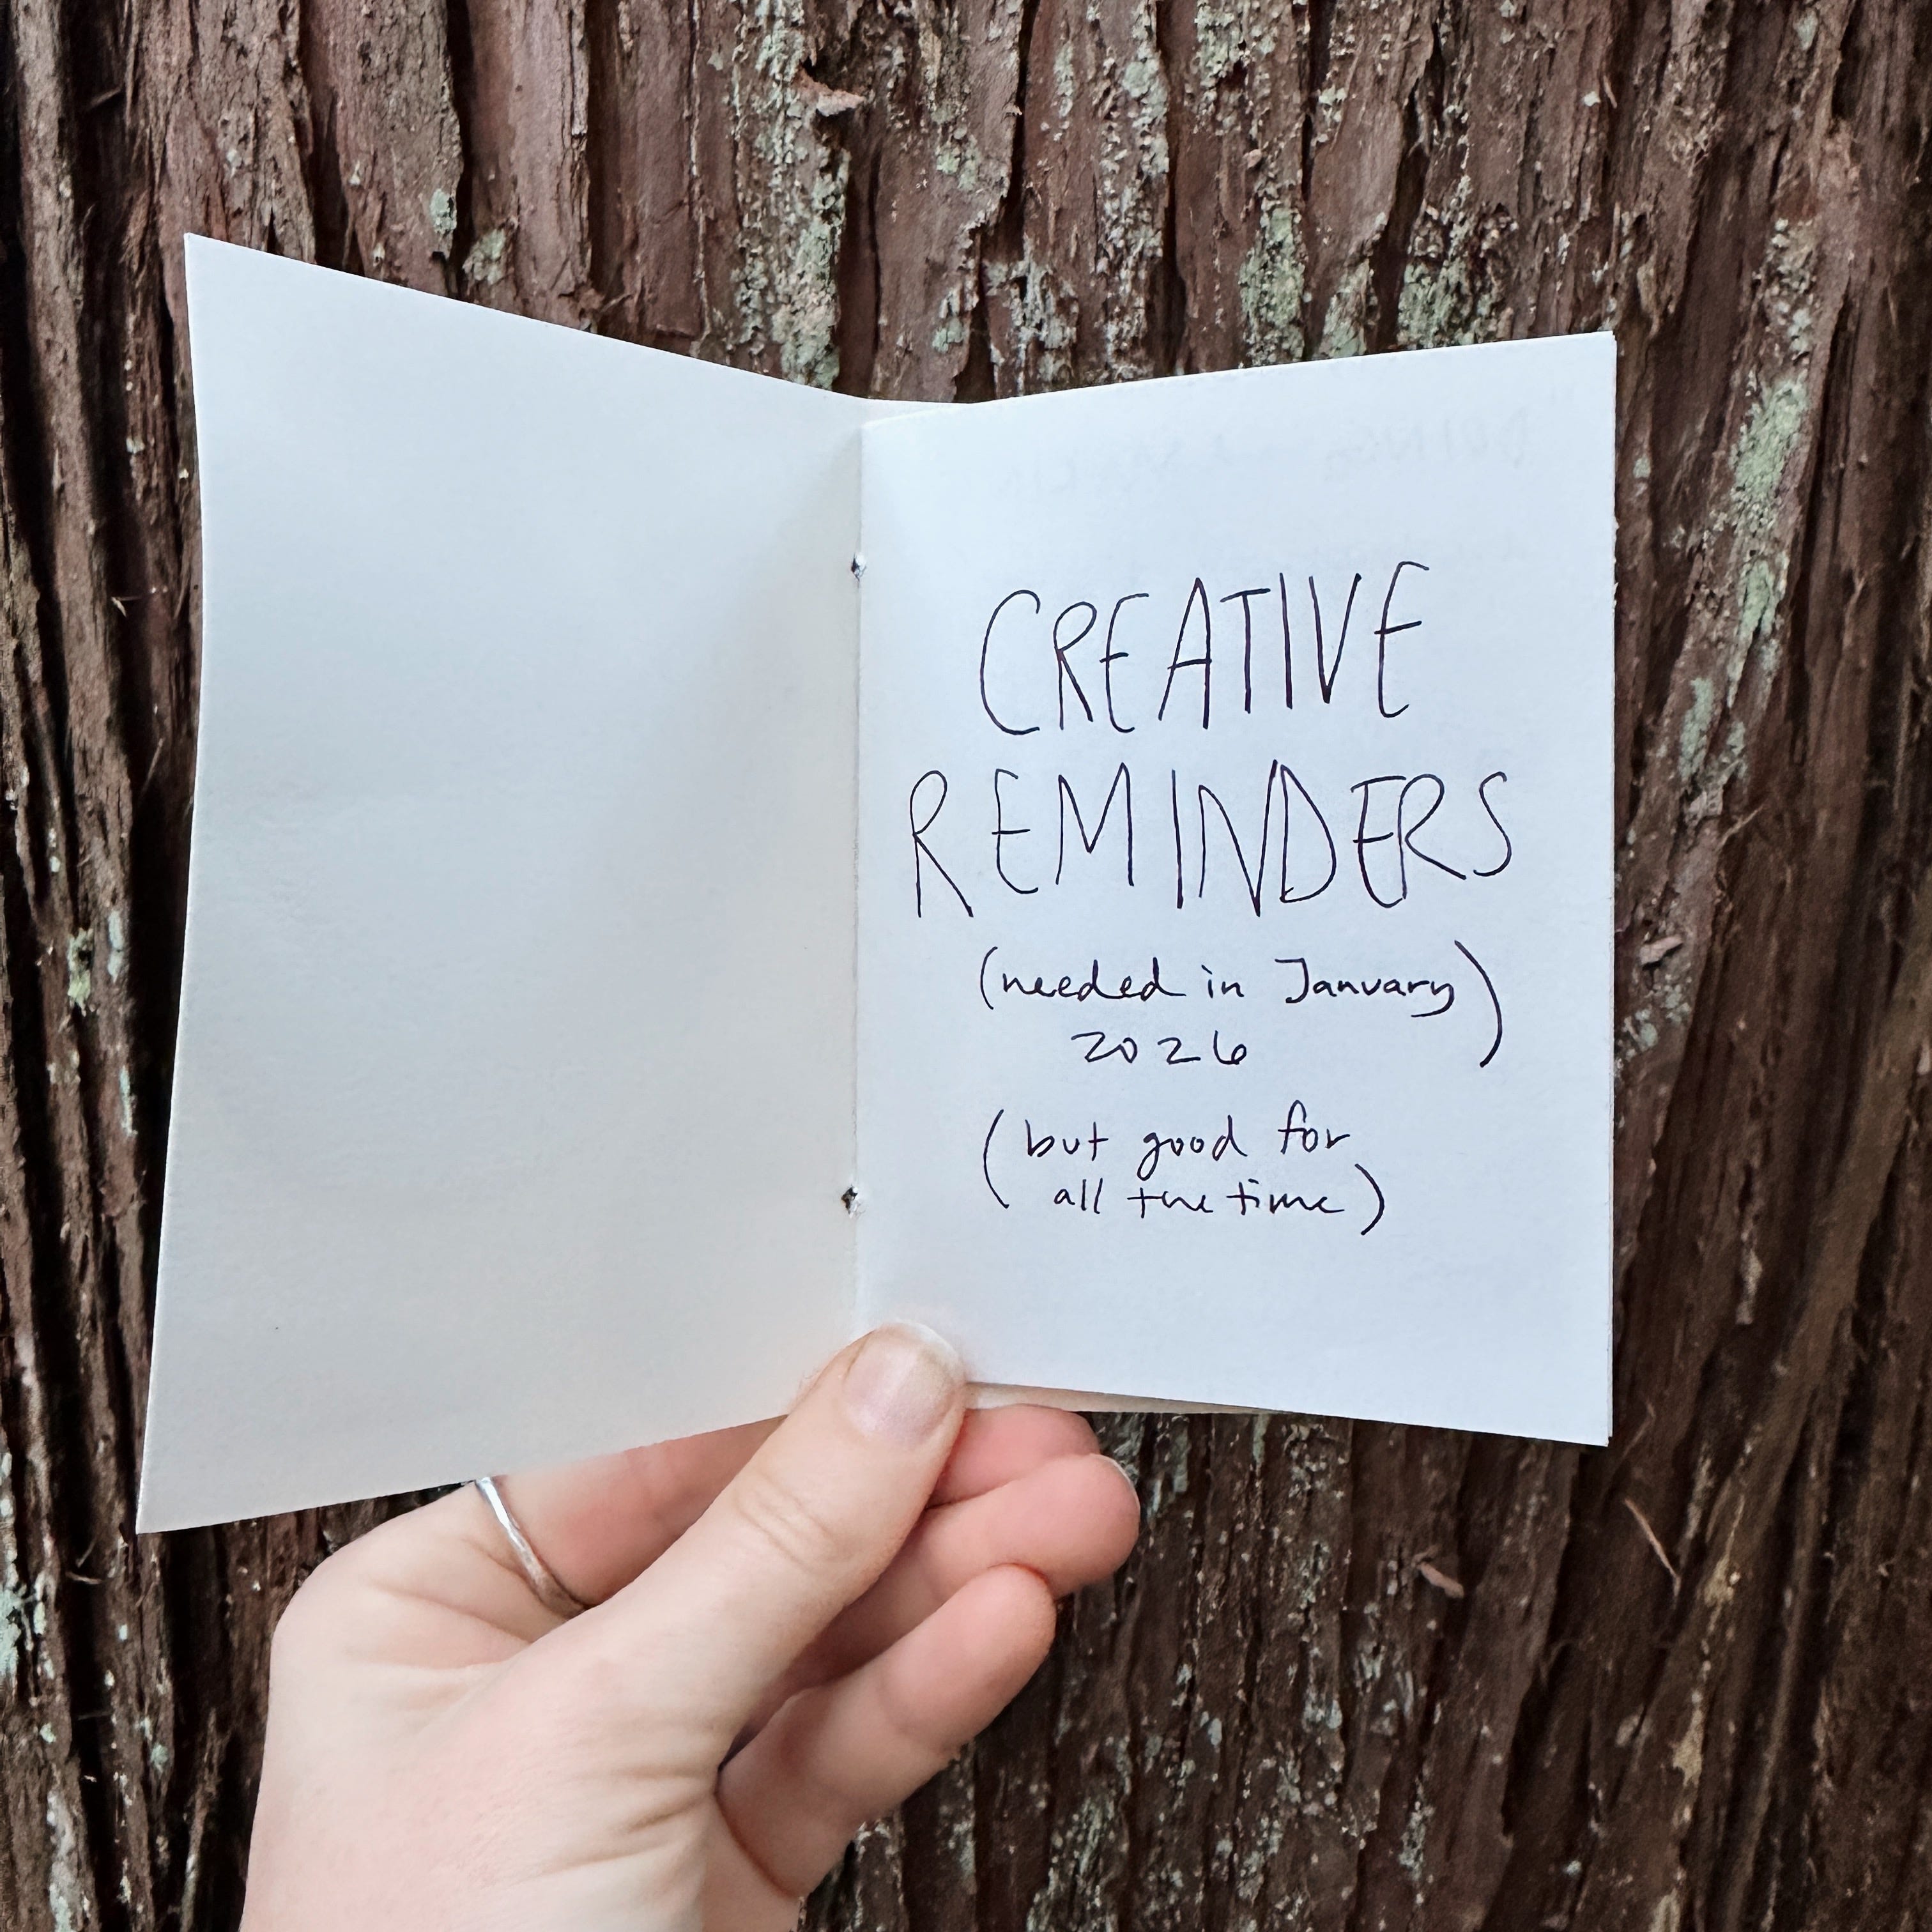 CREATIVE
REMINDERS
(needed in January
2026)
(but good for
all the time)